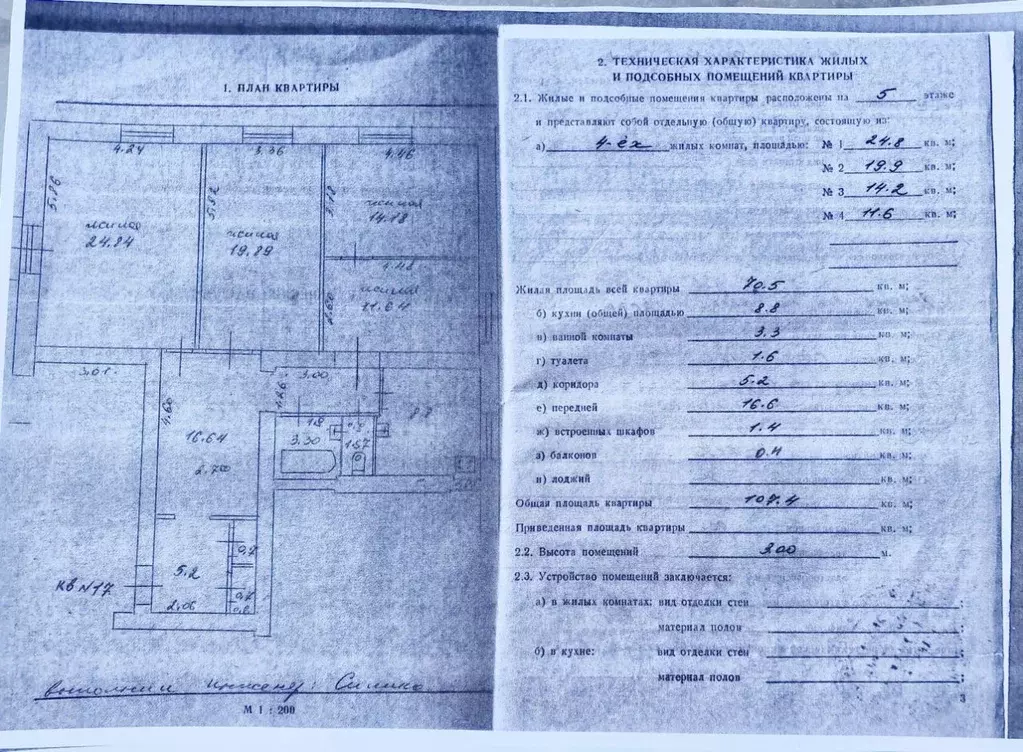 1. ПЛАН КВАРТИРЫ
4.24
3.36
4.46
5.86
5.92
3.18
жилая
24.84
жилая
19.89
жилая
14.18
4.48
2.60
жилая
11.64
3.01
3.00
1.26
4.60
16.64
2.70
3.30
1.57
5.2
2.06
0.2
кв №17
выполнил инженер:
М 1 : 200
2. ТЕХНИЧЕСКАЯ ХАРАКТЕРИСТИКА ЖИЛЫХ
И ПОДСОБНЫХ ПОМЕЩЕНИЙ КВАРТИРЫ
2.1. Жилые и подсобные помещения квартиры расположены на 5 этаже
и представляют собой отдельную (общую) квартиру, состоящую из:
а) 4-ёх жилых комнат, площадью: № 1 24.8 кв. м;
№ 2 19.9 кв. м;
№ 3 14.2 кв. м;
№ 4 11.6 кв. м;
Жилая площадь всей квартиры 70.5 кв. м;
б) кухни (общей) площадью 8.8 кв. м;
в) ванной комнаты 3.3 кв. м;
г) туалета 1.6 кв. м;
д) коридора 5.2 кв. м;
е) передней 16.6 кв. м;
ж) встроенных шкафов 1.4 кв. м;
з) балконов 0.4 кв. м;
и) лоджий кв. м;
Общая площадь квартиры 107.4 кв. м;
Приведенная площадь квартиры кв. м;
2.2. Высота помещений 3.00 м.
2.3. Устройство помещений заключается:
а) в жилых комнатах: вид отделки стен ;
материал полов ;
б) в кухне: вид отделки стен ;
материал полов ;
3